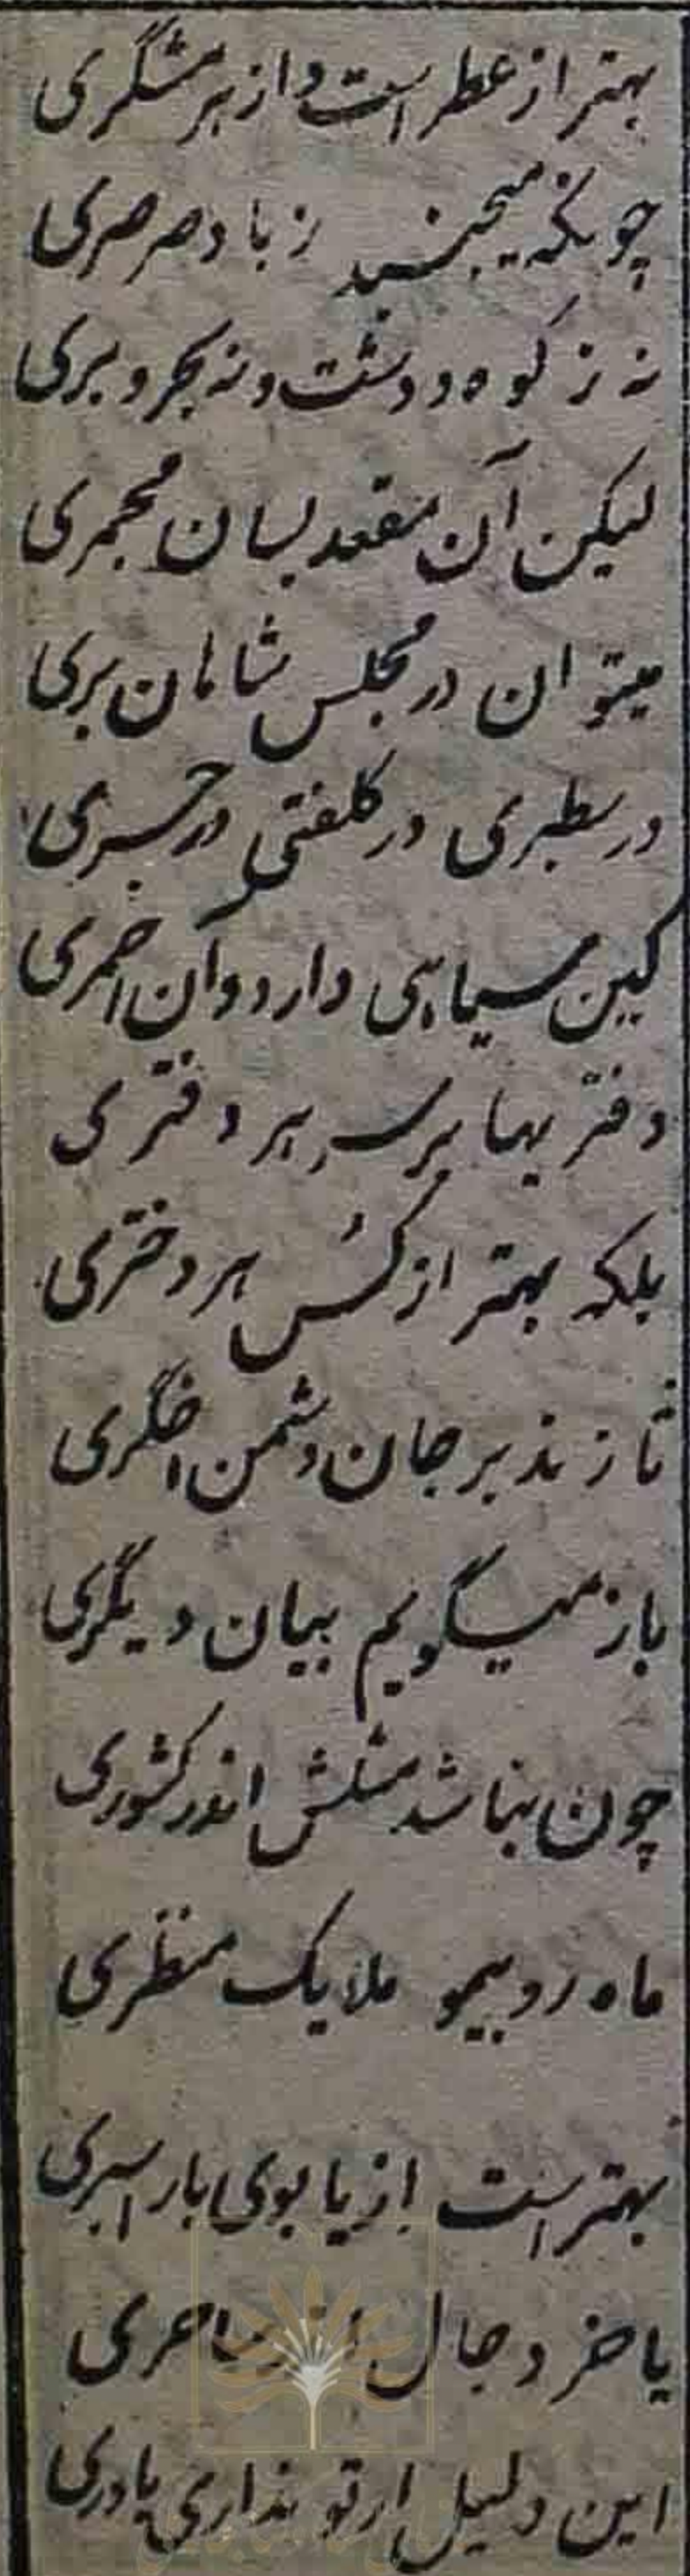 بهتر از عطر است و از هر مشگری
چونکه میجنبد ز باد صرصری
نه ز کوه و دشت و نه بحر و بری
لیکن آن مقعد بسان مجمری
میتوان در مجلس شاهان بری
در سطبری در کلفتی در خری
کین سیاهی دارد و آن احمری
دفتر بها بر سر هر دفتری
بلکه بهتر از کُس هر دختری
تا زند بر جان دشمن اخگری
باز میگویم بیان دیگری
چون نباشد مثلش اندر کشوری
ماه رو بیمو ملایک منظری
بهتر است از یابوی بار اسبری
یا خر دجال
این دلیل ار تو نداری یادری